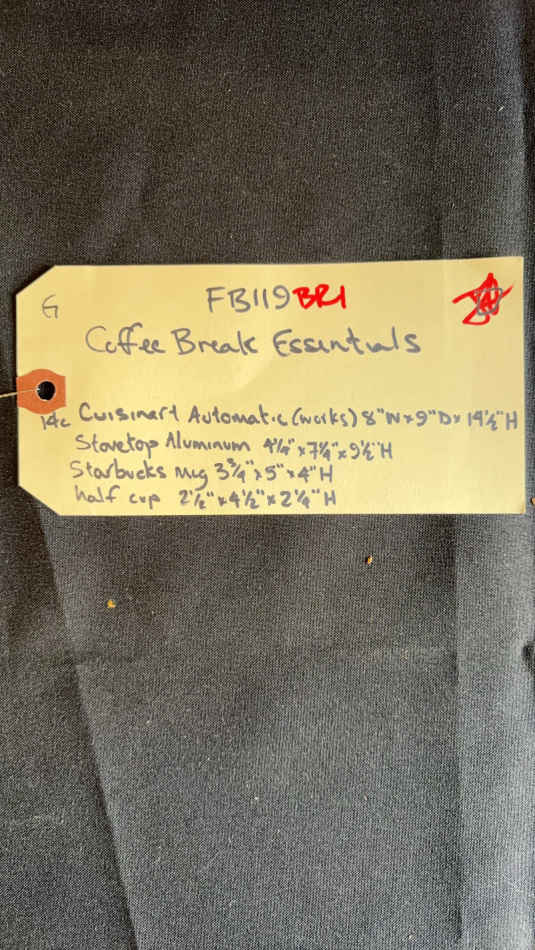 G
FB119 BR1
Coffee Break Essentials
14c Cuisinart Automatic (works) 8"W x 9"D x 14½"H
Stovetop Aluminum 4¼" x 7¾" x 9½"H
Starbucks Mug 3¾" x 5" x 4"H
half cup 2½" x 4½" x 2¼"H